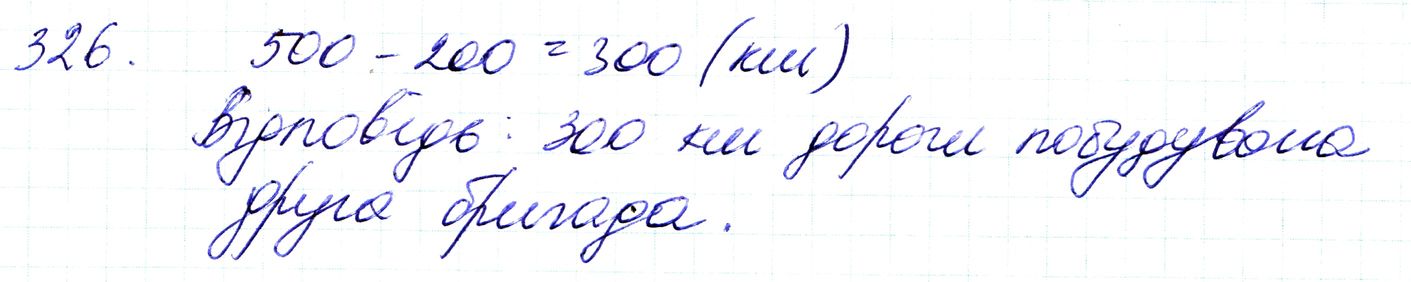 326. 500 - 200 = 300 (км)
Відповідь: 300 км дороги побудувала
друга бригада.